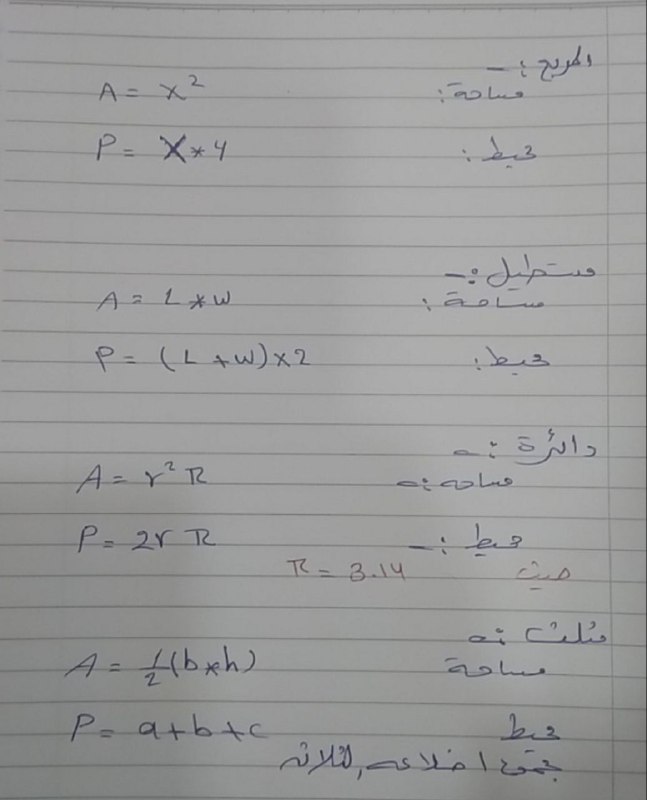 المربع :-
مساحة: A = x²
محيط: P = X * 4
مستطيل :-
مساحة: A = L * w
محيط: P = (L + w) × 2
دائرة :-
مساحه :- A = r² π
محيط :- P = 2r π
حيث π = 3.14
مثلث :-
مساحة A = 1/2 (b * h)
محيط P = a + b + c
مجموع اضلاعه الثلاثه